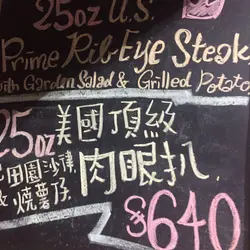 25oz U.S.
Prime Rib-Eye Steak
with Garden Salad & Grilled Potato
25oz 美國頂級
田園沙律 肉眼扒
& 燒薯仔
$640